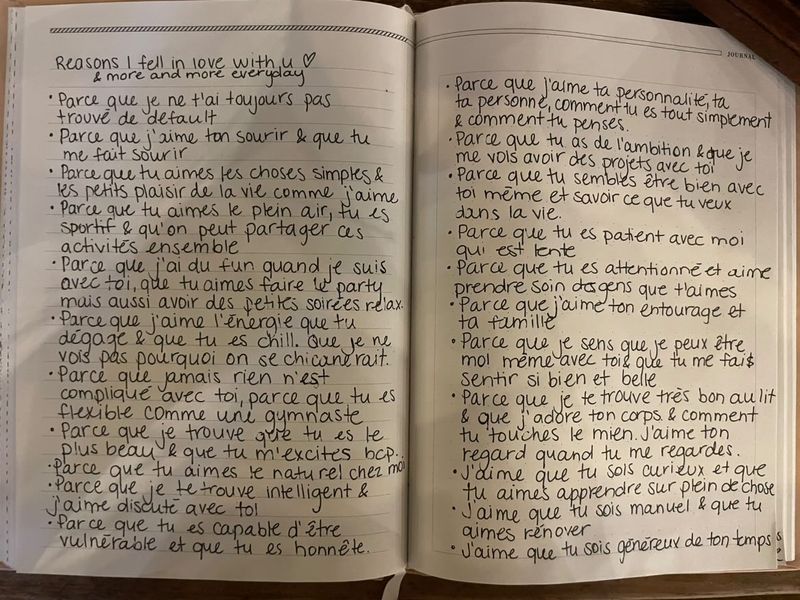 Reasons I fell in love with u ♡
& more and more everyday
• Parce que je ne t'ai toujours pas
trouvé de défault
• Parce que j'aime ton sourir & que tu
me fait sourir
• Parce que tu aimes les choses simples &
les petits plaisir de la vie comme j'aime
• Parce que tu aimes le plein air, tu es
sportif & qu'on peut partager ces
activités ensemble
• Parce que j'ai du fun quand je suis
avec toi, que tu aimes faire le party
mais aussi avoir des petites soirées relax.
• Parce que j'aime l'énergie que tu
dégage & que tu es chill. Que je ne
vois pas pourquoi on se chicanerait.
• Parce que jamais rien n'est
compliqué avec toi, parce que tu es
flexible comme une gymnaste
• Parce que je trouve que tu es le
plus beau & que tu m'excites bcp.
• Parce que tu aimes le naturel chez moi
• Parce que je te trouve intelligent &
j'aime discuté avec toi
• Parce que tu es capable d'être
vulnérable et que tu es honnête.
JOURNAL
• Parce que j'aime ta personnalité, ta
ta personne, comment tu es tout simplement
& comment tu penses.
• Parce que tu as de l'ambition & que je
me vois avoir des projets avec toi
• Parce que tu sembles être bien avec
toi même et savoir ce que tu veux
dans la vie.
• Parce que tu es patient avec moi
qui est lente
• Parce que tu es attentionné et aime
prendre soin des gens que t'aimes
• Parce que j'aime ton entourage et
ta famille
• Parce que je sens que je peux être
moi même avec toi & que tu me fais
sentir si bien et belle
• Parce que je te trouve très bon au lit
& que j'adore ton corps & comment
tu touches le mien. J'aime ton
regard quand tu me regardes.
• J'aime que tu sois curieux et que
tu aimes apprendre sur plein de chose
• J'aime que tu sois manuel & que tu
aimes rénover
• J'aime que tu sois généreux de ton temps